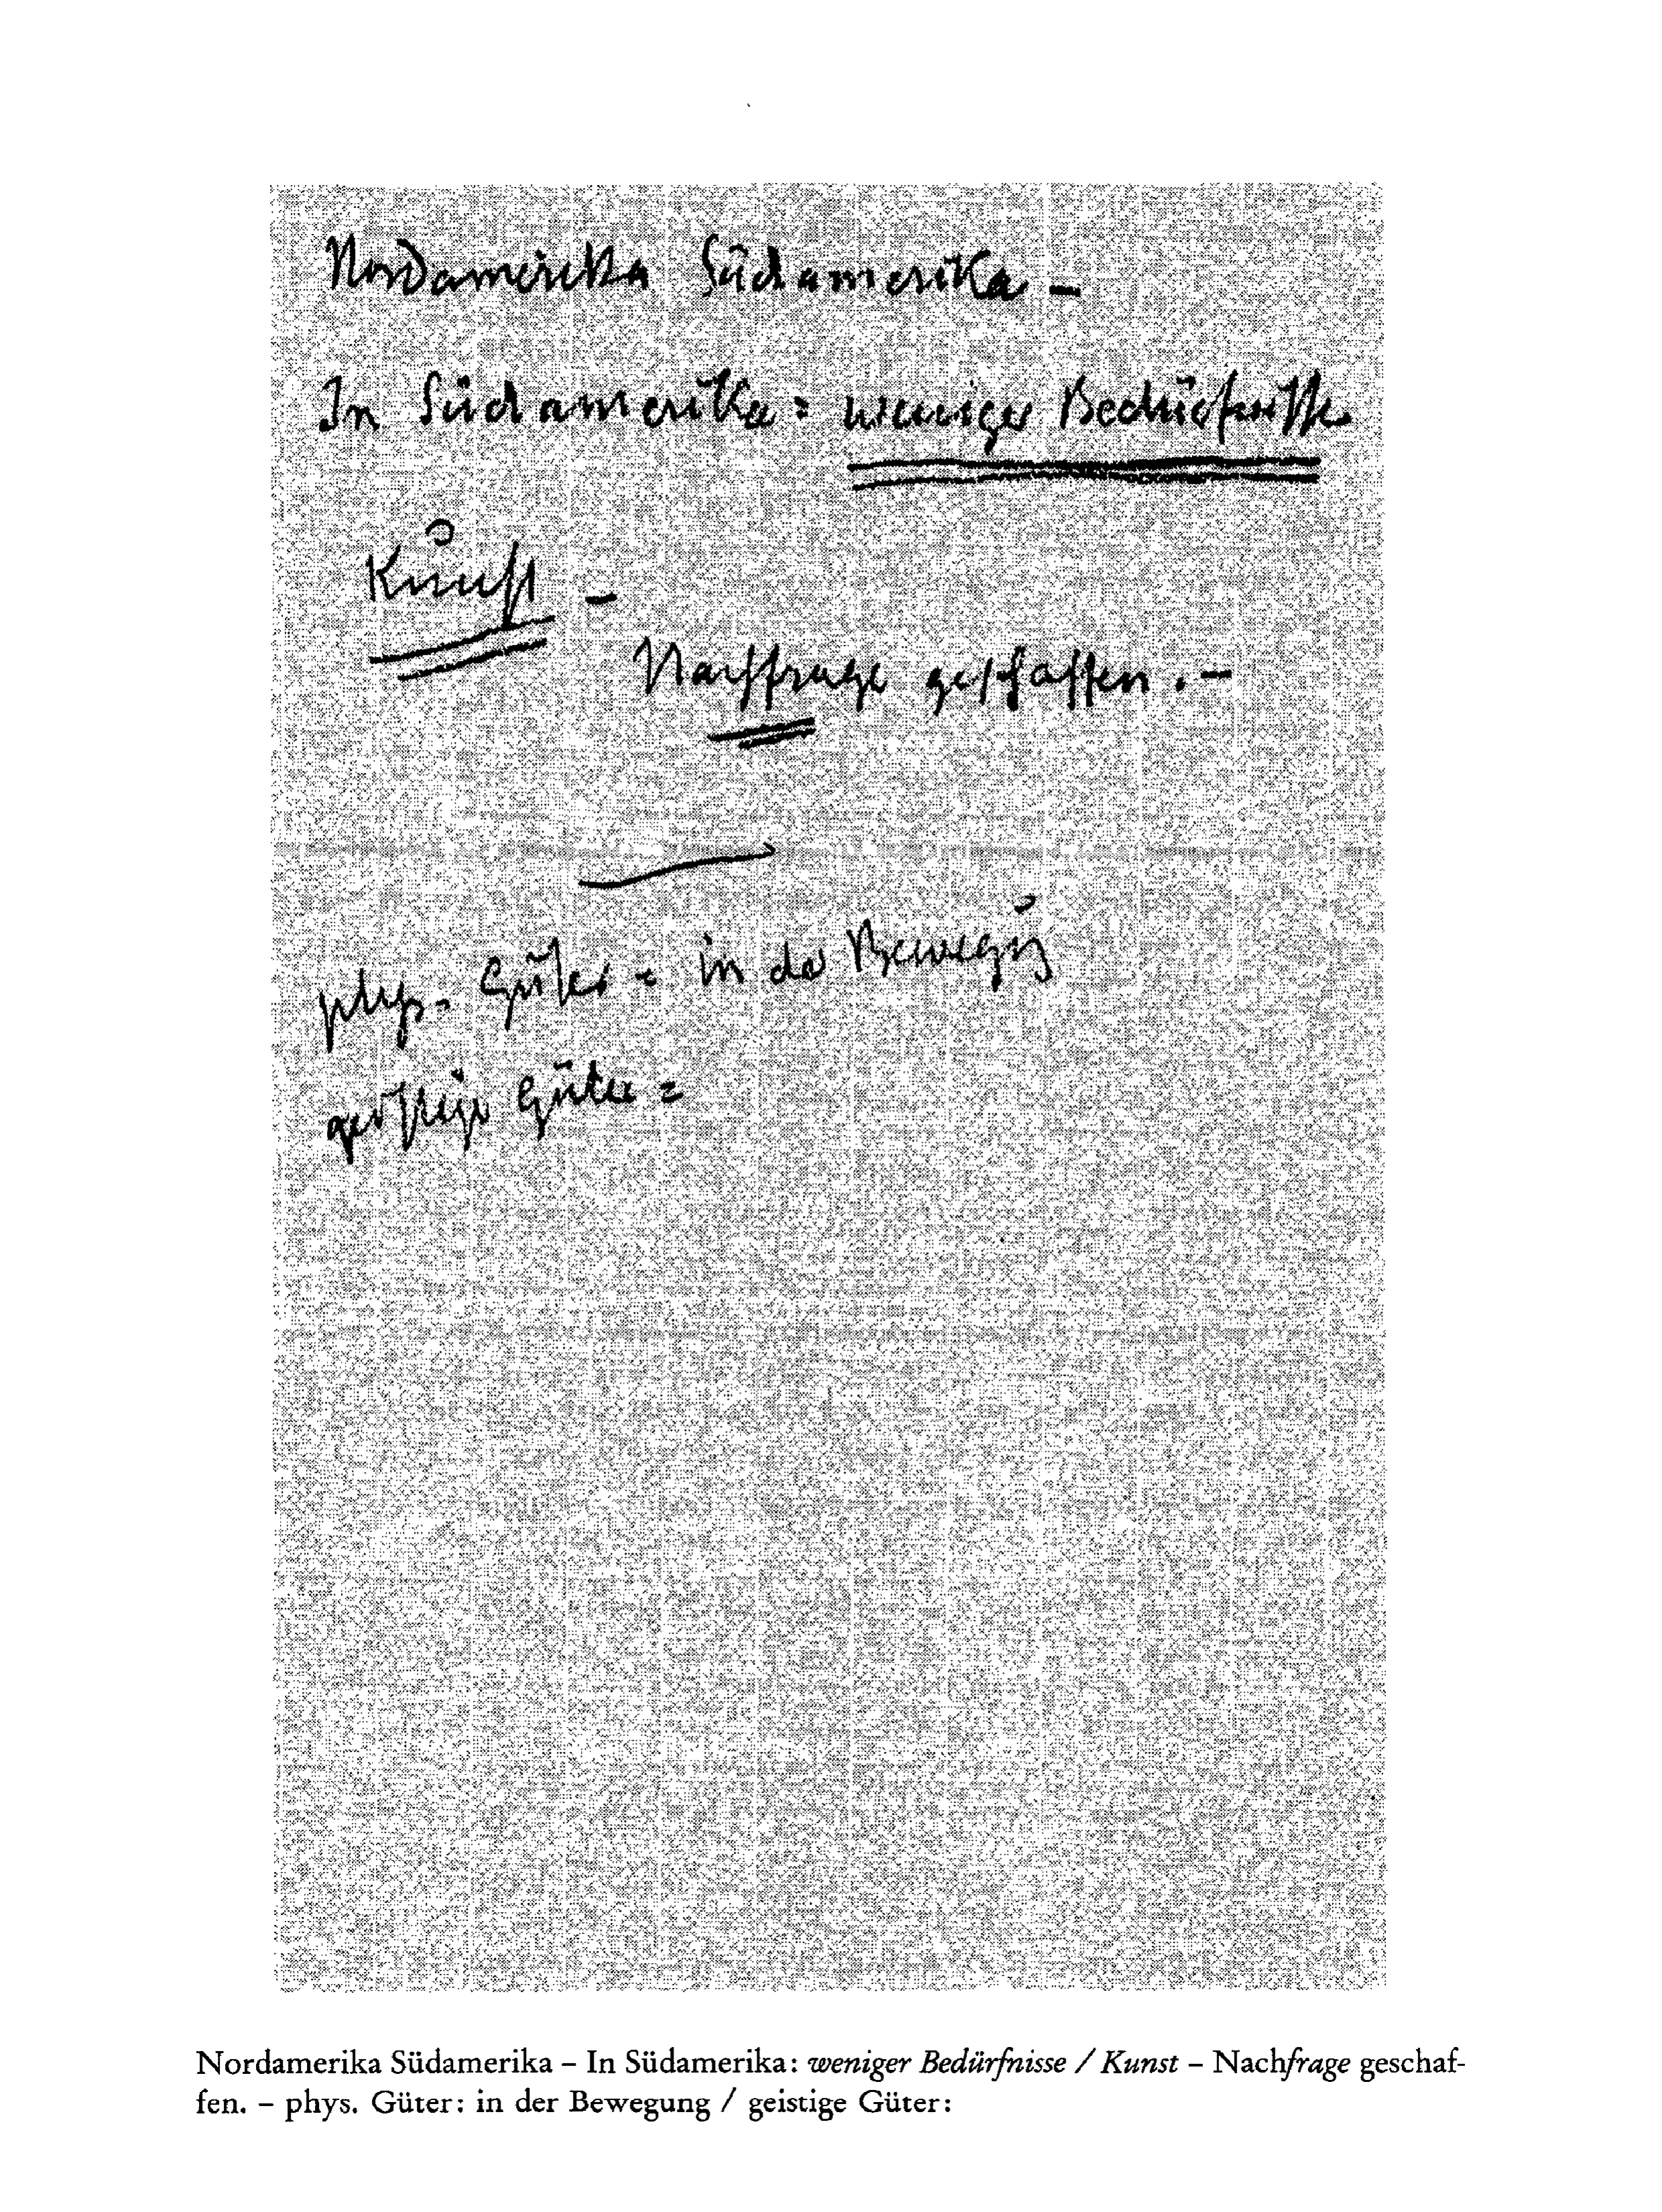 Nordamerika Südamerika –
In Südamerika: weniger Bedürfnisse
Kunst –
Nachfrage geschaffen. –
phys. Güter: in der Bewegung
geistige Güter:
Nordamerika Südamerika – In Südamerika: weniger Bedürfnisse / Kunst – Nachfrage geschaf-
fen. – phys. Güter: in der Bewegung / geistige Güter: